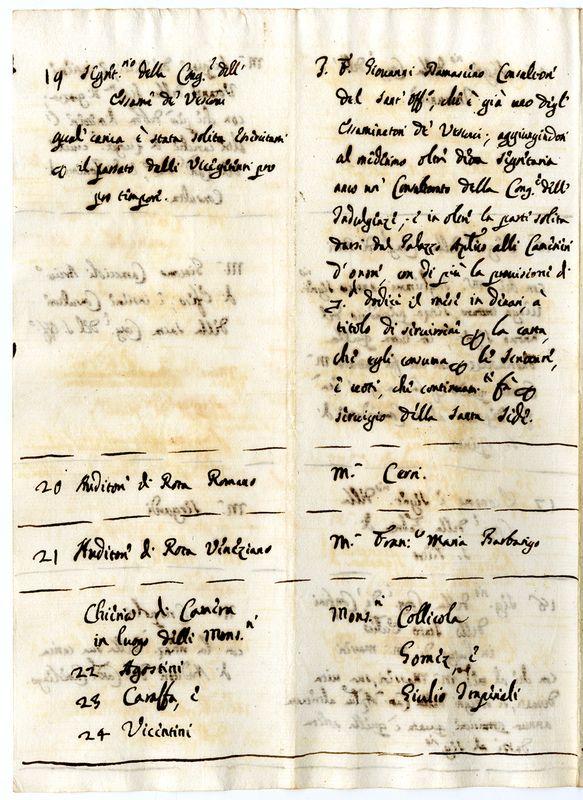 19 Segret.rio della Cong.e dell'
Essame de' Vescovi
qual carica è stata solita esercitarsi
p il passato dalli Vicegerenti pro
pro tempore.
P. F. Giovanni Damasceno Consultore
del Sant' Off.o, che è già uno degl'
Essaminatori de' Vescovi; aggiungendosi
al medesimo oltre detta Segretaria
anco un' Consultorato della Cong.e dell'
Indulgenze, e in oltre la parte solita
darsi dal Palazzo Aplico alli Camerieri
d' onore, con di più la provisione di
dodici il mese in denari à
titolo di sovvenire p la carta,
che egli consuma p le scritture,
e voti, che continuam.te fà p
servigio della Santa Sede.
20 Auditore di Rota Romano
M.r Cerri.
21 Auditore di Rota Veneziano
M.r Fran.co Maria Barbarigo
Chierici di Camera
in luogo delli Mons.ri
22 Agostini
23 Caraffa, e
24 Vicentini
Mons.ri Collicola
Gomez, e
Giulio Imperiali